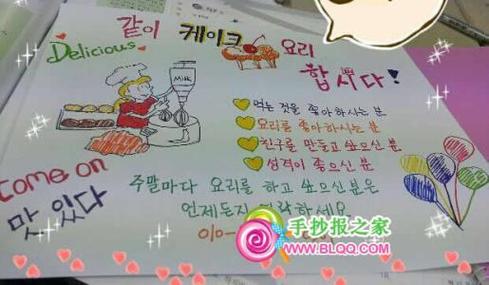 같이 케이크 요리
Delicious
합시다!
Milk
먹는 것을 좋아하시는 분
요리를 좋아하시는 분
친구를 만들고 싶으신 분
성격이 좋으신 분
come on
맛 있다
주말마다 요리를 하고 싶으신분은
언제든지 하세요
010-
手抄报之家
WWW.BLQQ.COM